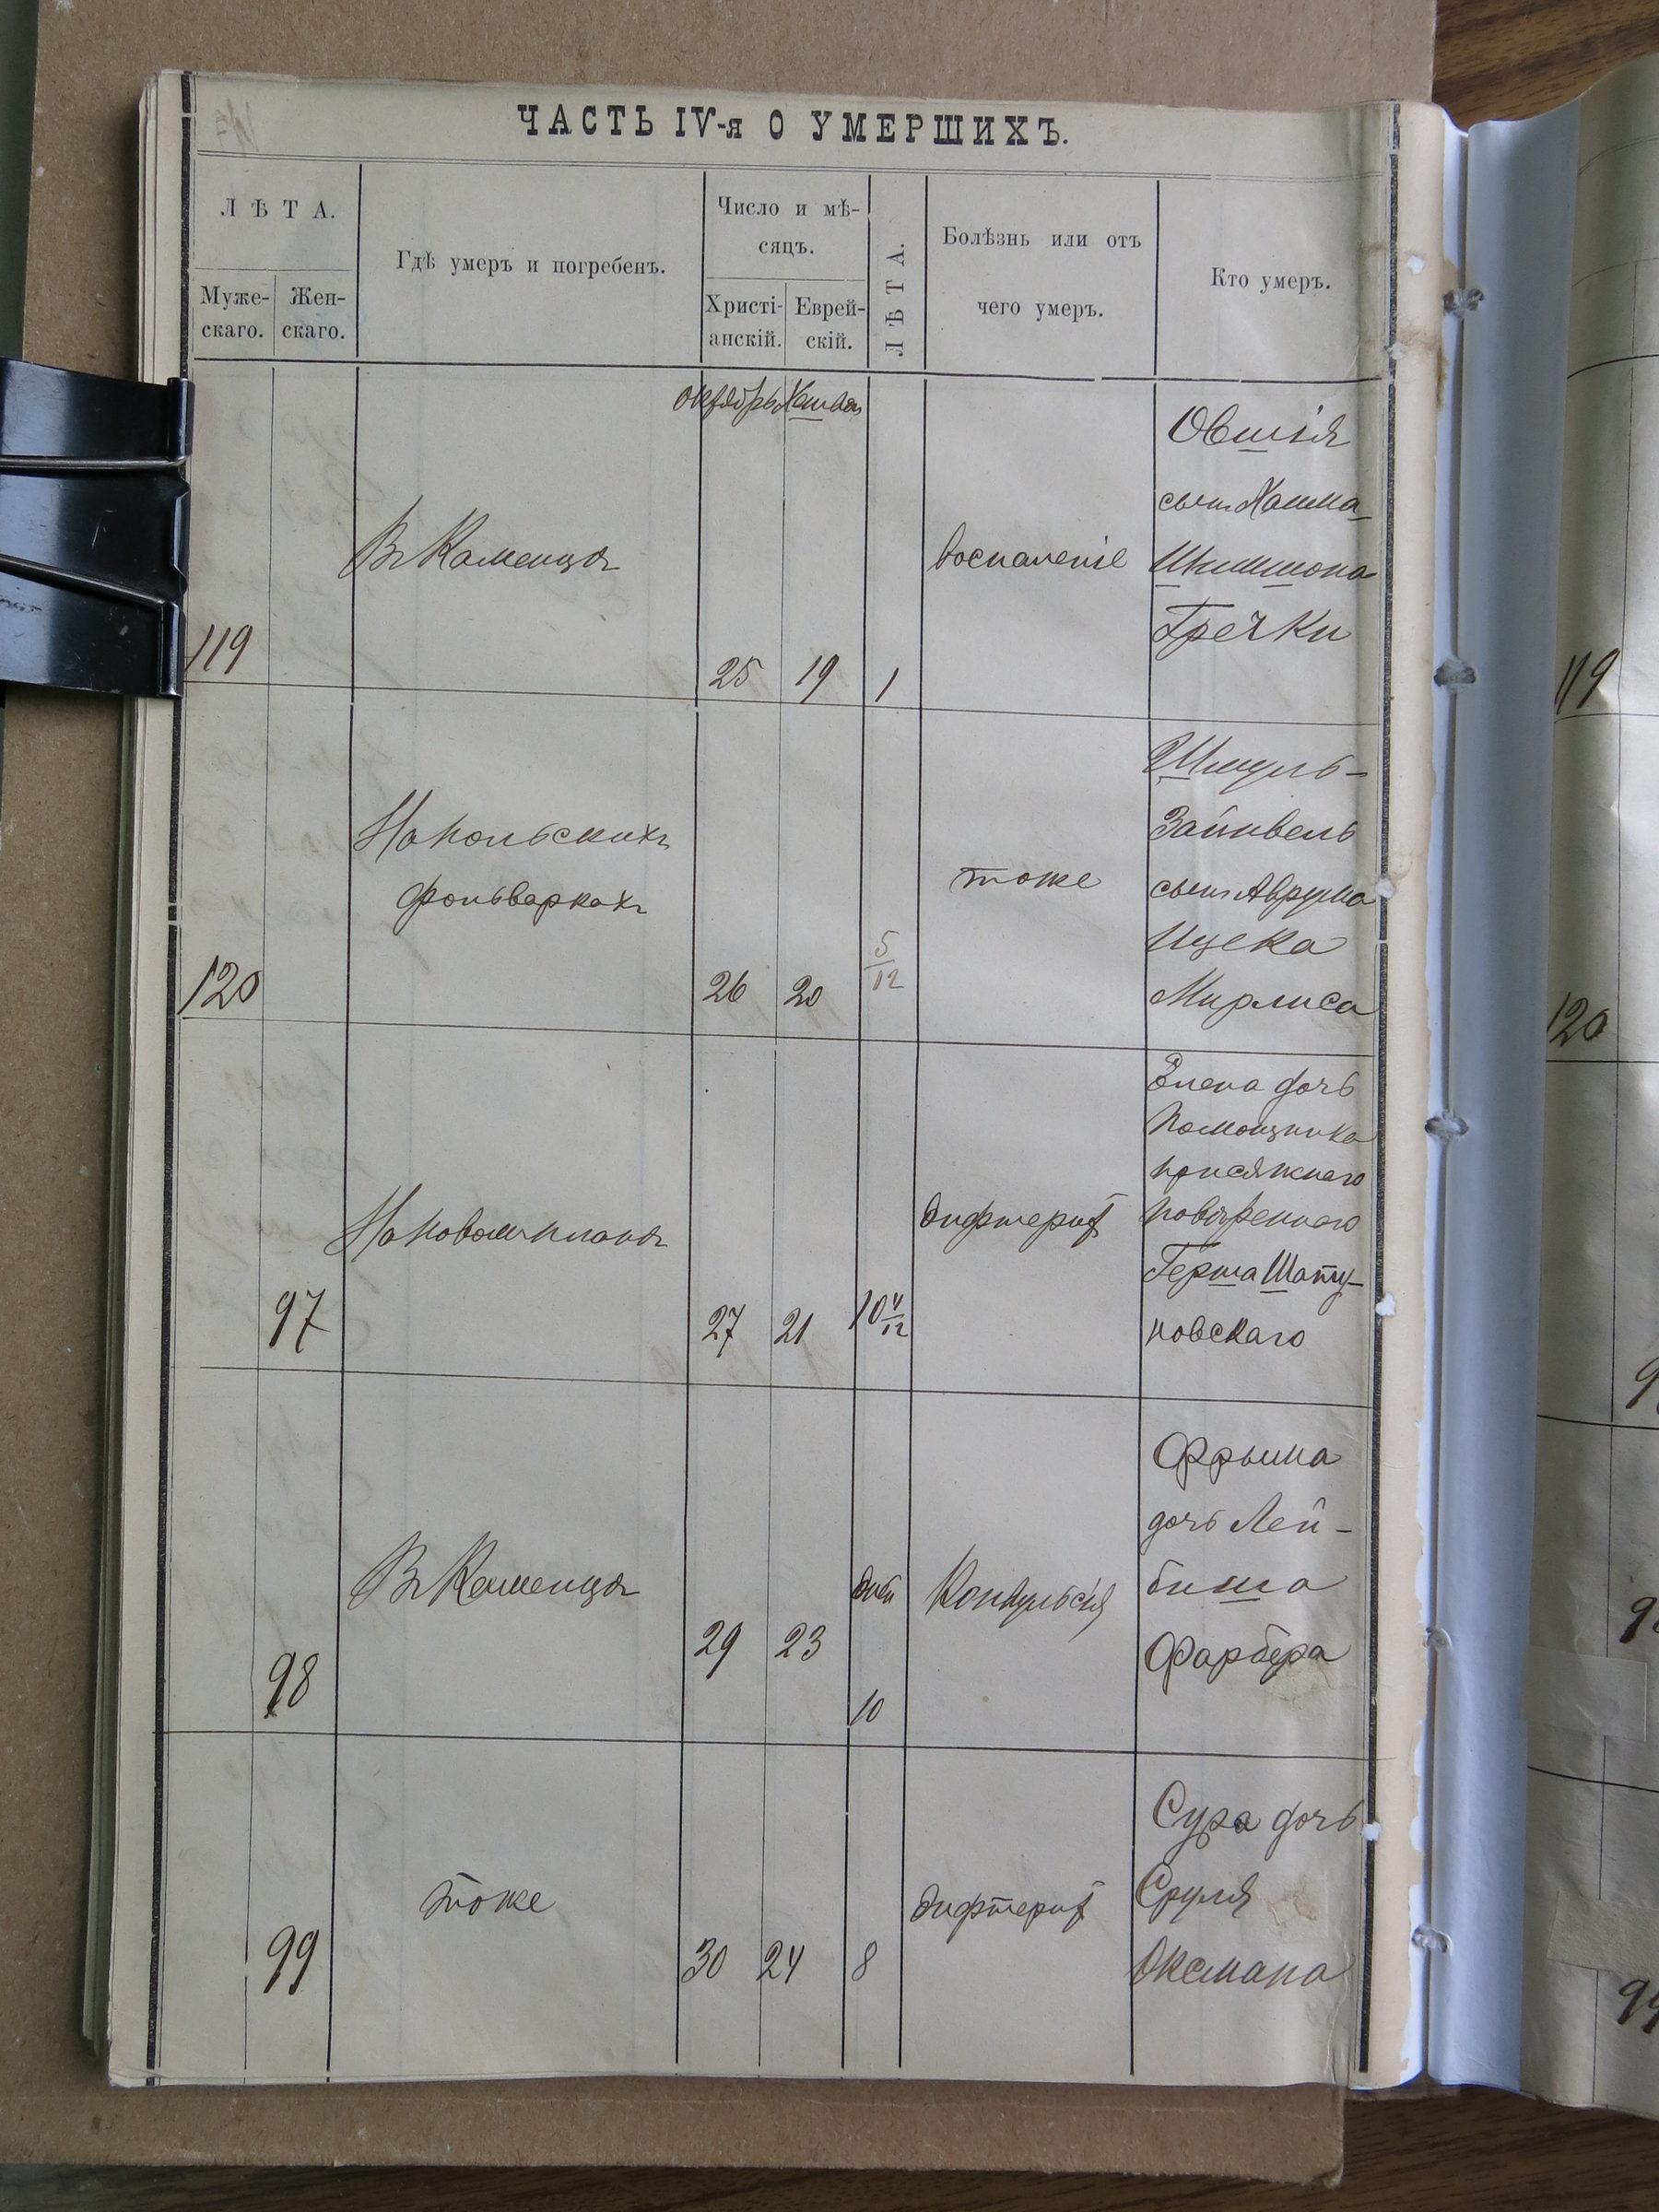 ЧАСТЬ IV-я О УМЕРШИХЪ.
ЛѢТА.
Муже-
скаго.
Жен-
скаго.
Гдѣ умеръ и погребенъ.
Число и мѣ-
сяцъ.
Христі-
анскій.
Еврей-
скій.
ЛѢТА.
Болѣзнь или отъ
чего умеръ.
Кто умеръ.
октябрь Хешван
119
Въ Каменцѣ
25 19 1
воспаленіе
Овшія
сынъ Хаима
Шимшона
Гречки
120
На польскихъ
фольваркахъ
26 20 5/12
тоже
Шмуль-
Зайнвель
сынъ Аврума
Ицека
Мирлиса
97
На новомъ планѣ
27 21 10 11/12
дифтеритъ
Елена дочь
помощника
присяжнаго
повѣреннаго
Герша Шату-
новскаго
98
Въ Каменцѣ
29 23
дней
10
Конвульсія
Фрыма
дочь Лей-
биша
Фарбера
99
тоже
30 24 8
дифтеритъ
Сура дочь
Сруля
Оксмана
119
120